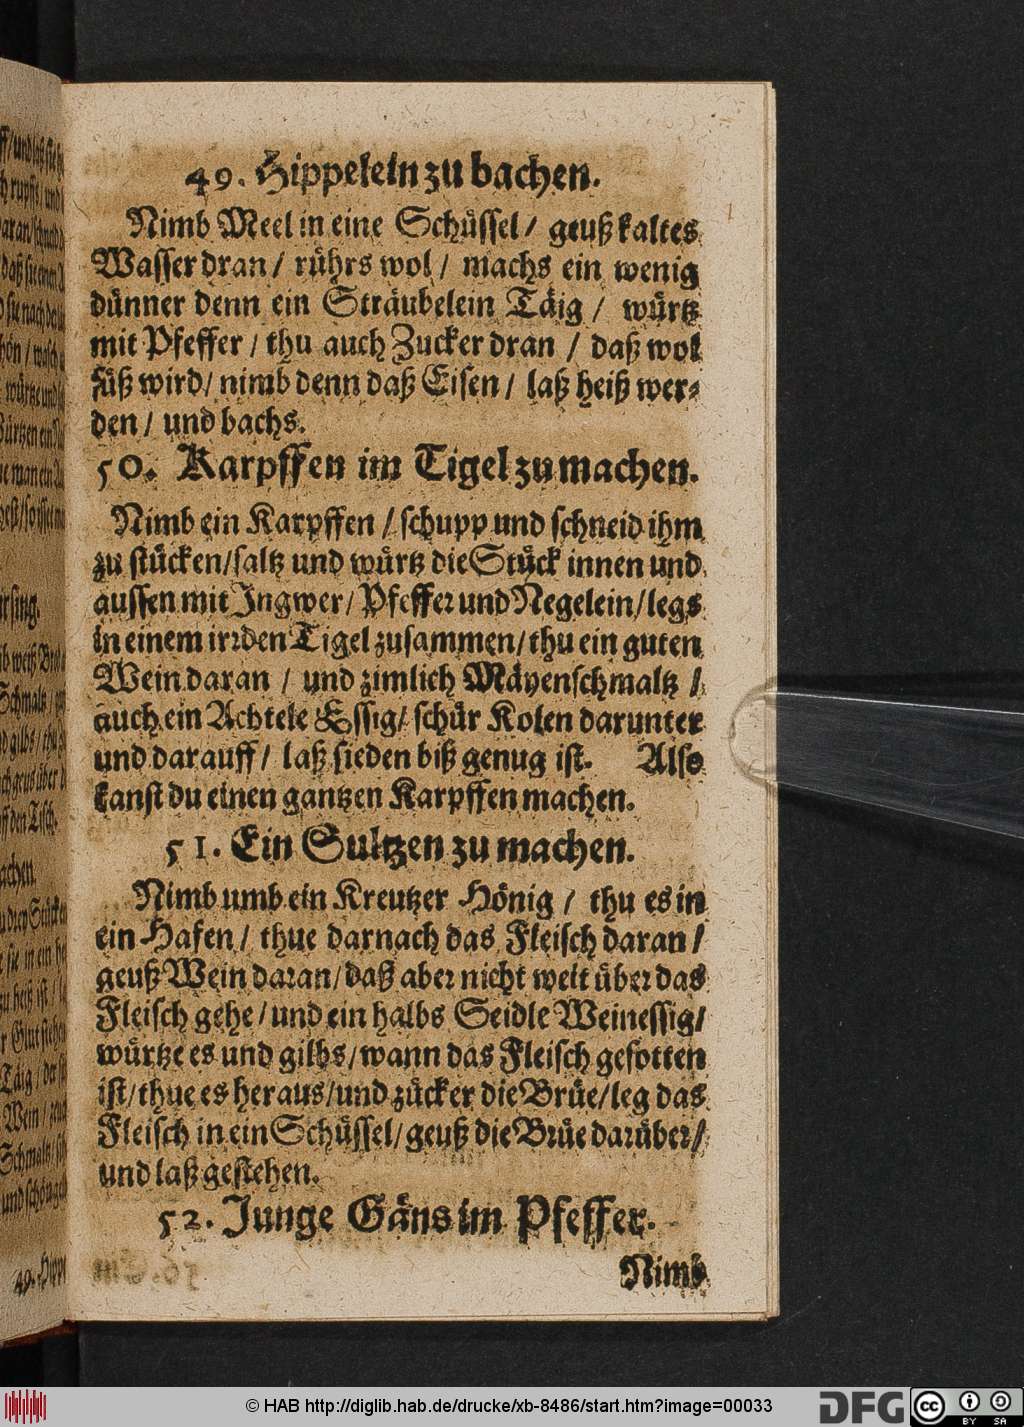 49. Hippelein zu bachen.
Nimb Meel in eine Schüssel / geuß kaltes
Wasser dran / rührs wol / machs ein wenig
dünner denn ein Sträubelein Täig / würtz
mit Pfeffer / thu auch Zucker dran / daß wol
süß wird / nimb denn daß Eisen / laß heiß wer-
den / und bachs.
50. Karpffen im Tigel zu machen.
Nimb ein Karpffen / schupp und schneid ihm
zu stücken / saltz und würtz die Stück innen und
aussen mit Ingwer / Pfeffer und Negelein / legs
in einem irrden Tigel zusammen / thu ein guten
Wein daran / und zimlich Mäyenschmaltz /
auch ein Achtele Essig / schür Kolen darunter
und darauff / laß sieden biß genug ist. Also
kanst du einen gantzen Karpffen machen.
51. Ein Sultzen zu machen.
Nimb umb ein Kreutzer Hönig / thu es in
ein Hafen / thue darnach das Fleisch daran /
geuß Wein daran / daß aber nicht weit über das
Fleisch gehe / und ein halbs Seidle Weinessig /
würtze es und gilbs / wann das Fleisch gesotten
ist / thue es heraus / und zücker die Brüe / leg das
Fleisch in ein Schüssel / geuß die Brüe darüber /
und laß gestehen.
52. Junge Gäns im Pfeffer.
Nimb
© HAB http://diglib.hab.de/drucke/xb-8486/start.htm?image=00033
DFG
cc
BY SA